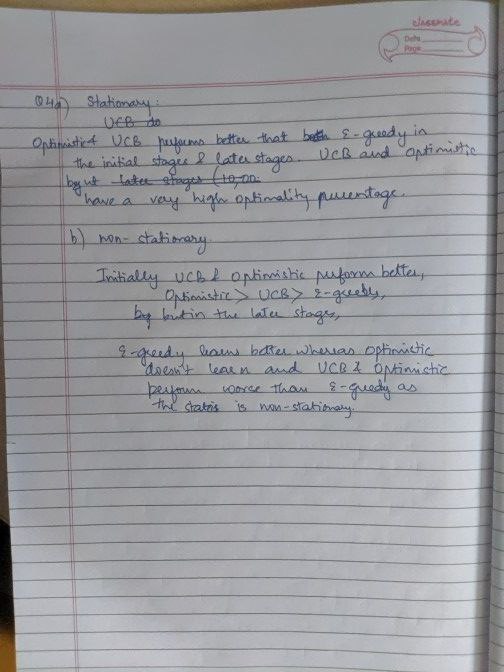 classmate
Date
Page
Q4a) Stationary:
UCB do
Optimistic & UCB performs better that both ε-greedy in
the initial stages & later stages. UCB and optimistic
but later stages (10,00.
have a very high optimality percentage.
b) non-stationary
Initially UCB & optimistic perform better,
Optimistic > UCB > ε-greedy,
but in the later stages,
ε-greedy learns better whereas optimistic
doesn't learn and UCB & Optimistic
perform worse than ε-greedy as
the is non-stationary.